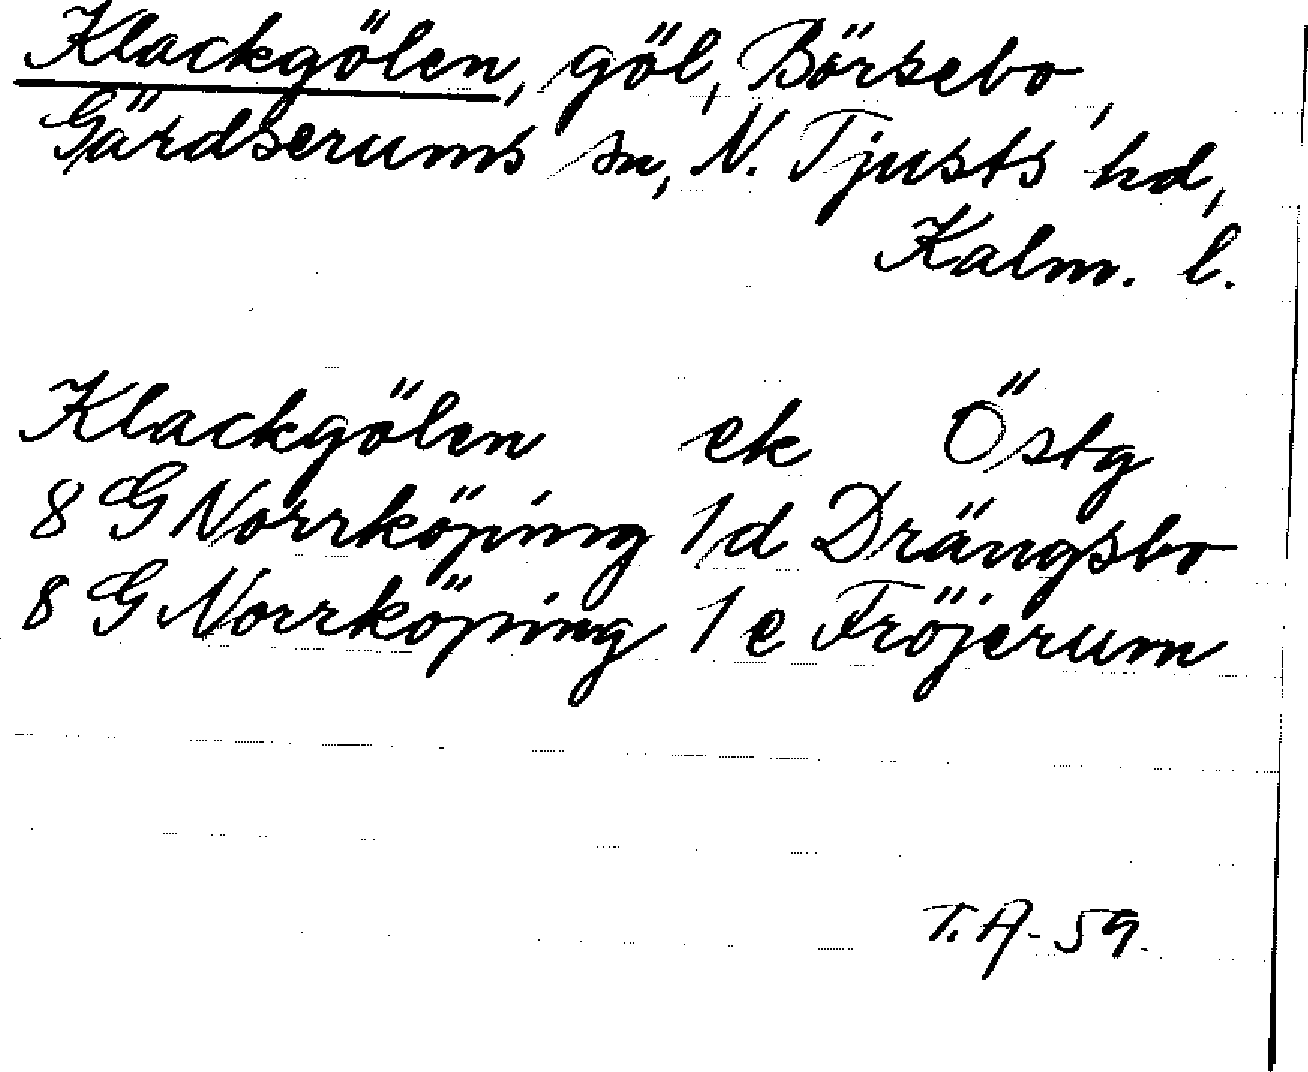 Klackgölen, göl, Börsebo,
Gärdserums sn, N. Tjusts hd,
Kalm. l.
Klackgölen ek Östg
8 G Norrköping 1d Drängsbo
8 G Norrköping 1e Fröjerum
T.A. 59.